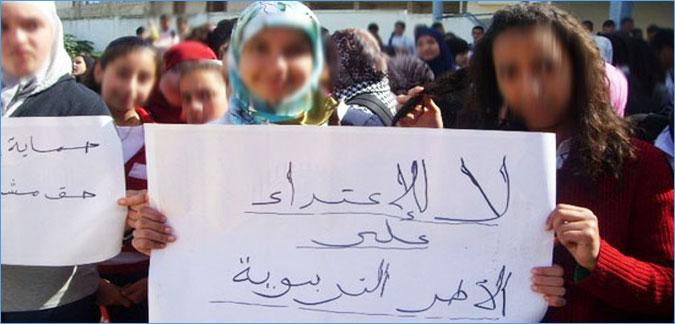 لا للإعتداء
على
الأطر التربوية
حماية
حق مشـ